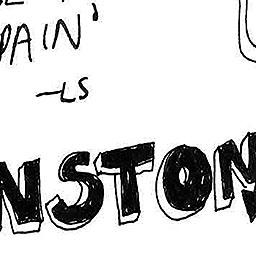 PAIN'
-LS
NSTON